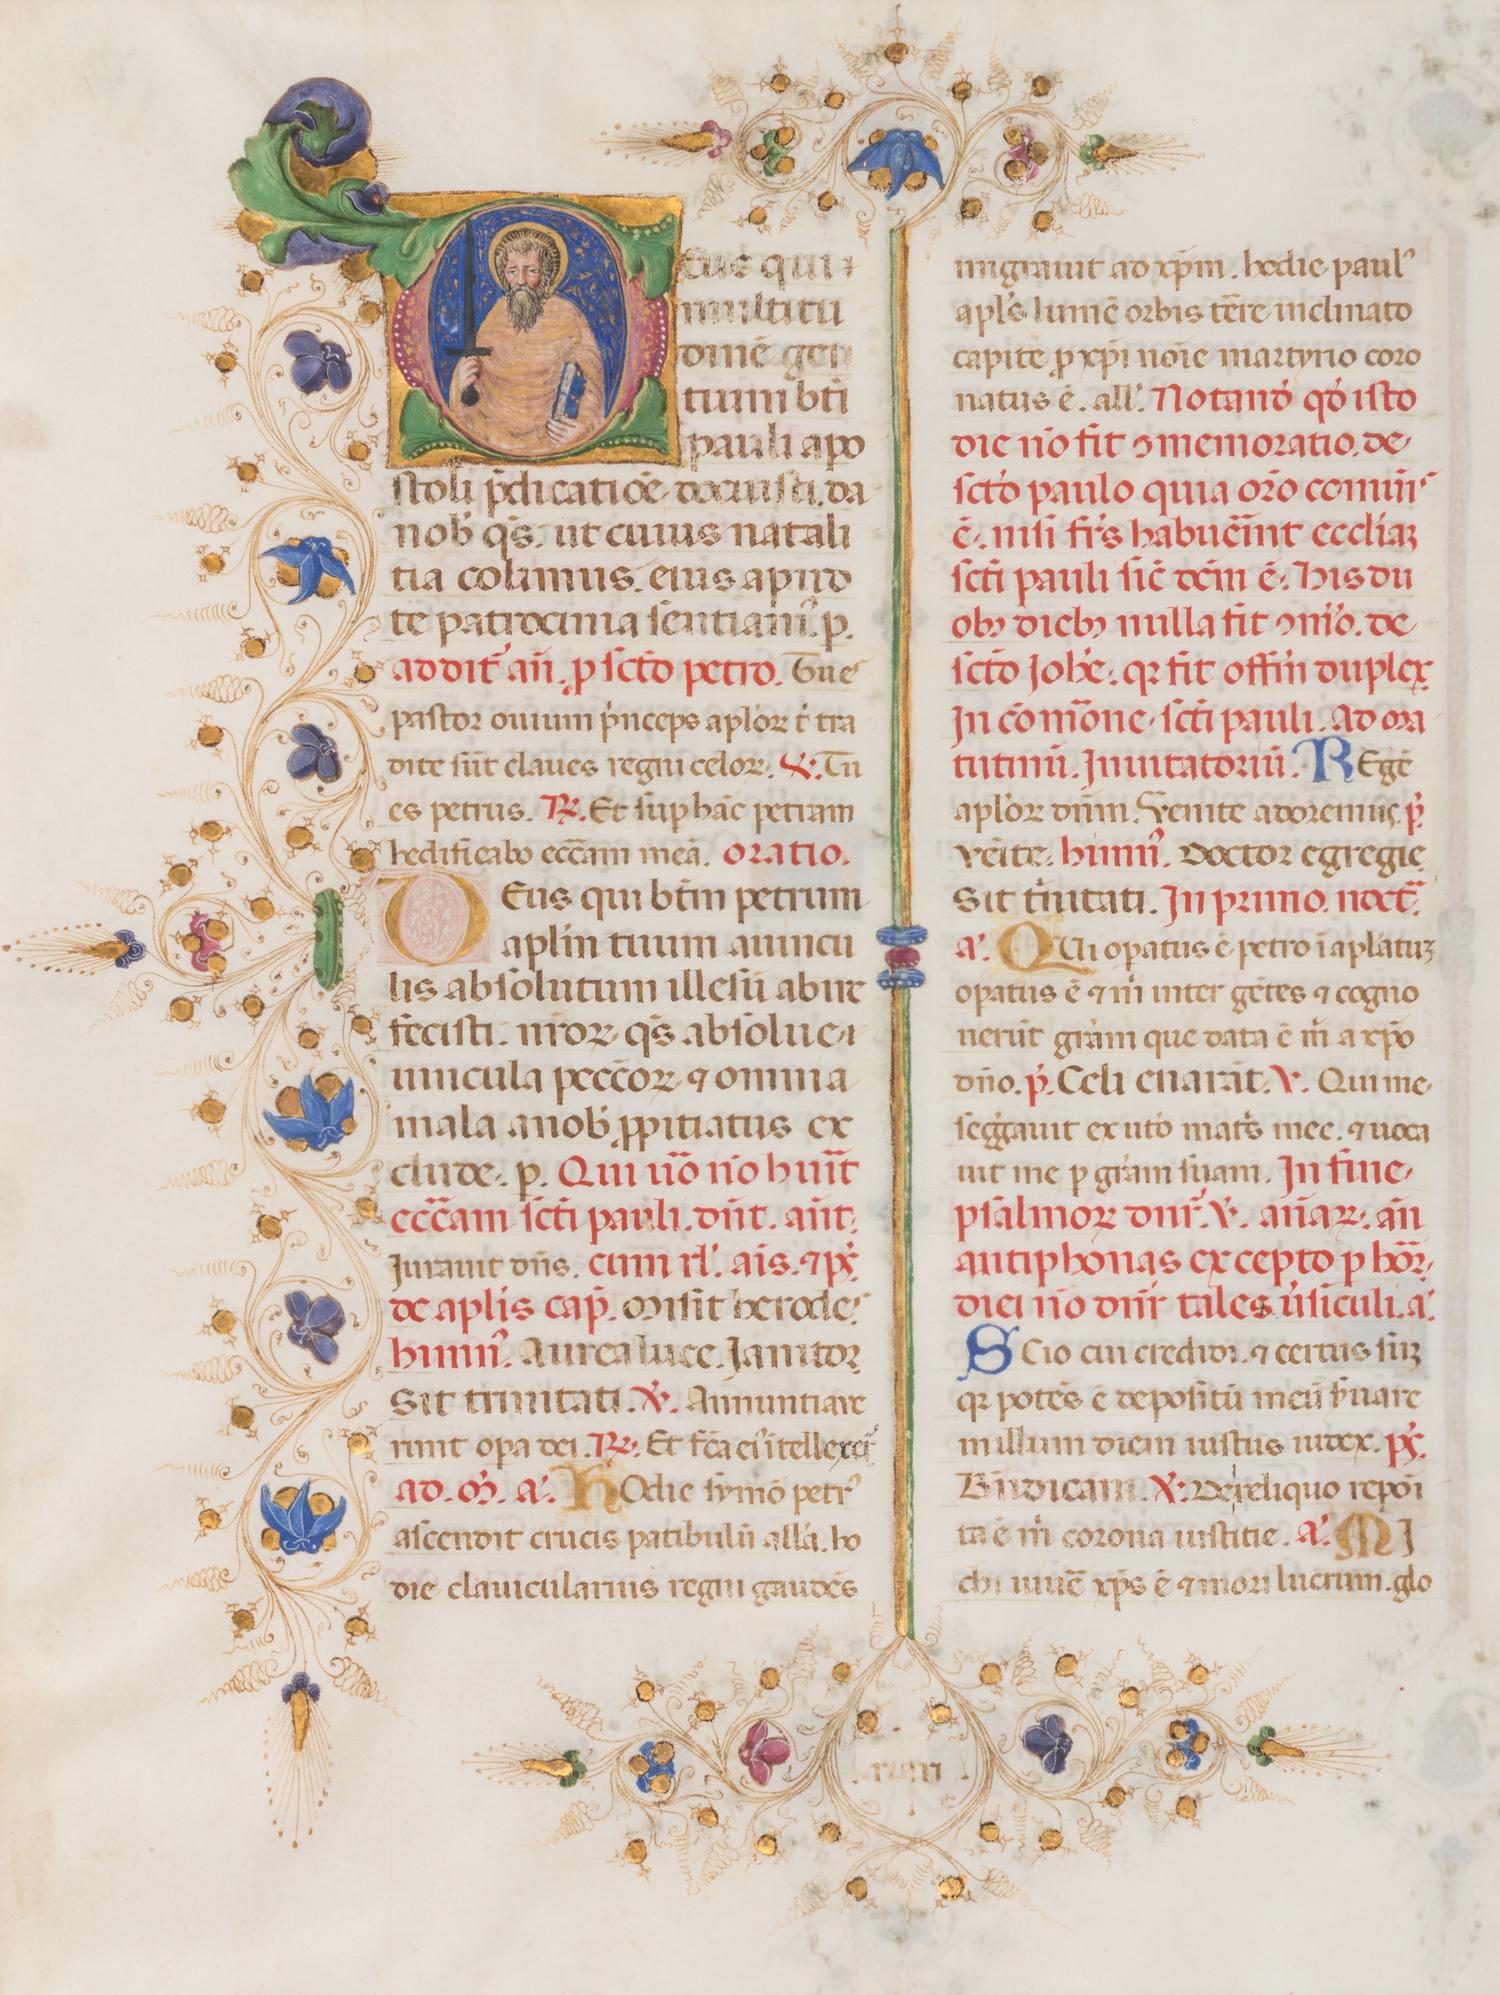 eus qui
multitu
dinē gen
tium bti
pauli apo
stoli p̄dicatiōe docuisti. da
nob' qs̄. ut cuius natali
tia colimus. eius apud
te patrocinia sentiam'. p.
addit' añ. p scto petro. Tu es
pastor ouium p̄nceps aplorꝝ t' tra
dite sūt claues regni celorꝝ. ℣. Tu
es petrus. ℞. Et sup hāc petram
hedificabo ecc̄am meā. oratio.
Deus qui btm petrum
aplm tuum a uincu
lis absolutum illesū abire
fecisti. nr̄orꝝ qs̄ absolue
uincula peccōrꝝ ⁊ omnia
mala a nob' ꝓpitiatus ex
clude. p. Qui uō nō hūnt
ecc̄am scti pauli. dn̄t. añt.
Jurauit dn̄s. cum rl'. ais. ⁊ pś.
de aplis cap̄. Misit herodes
himn'. Aurea luce. Janitor
Sit trinitati. ℣. Annuntiaue
runt opa dei. ℞. Et fc̄a ei' ītellexer̄t
ad. m̄. a'. Hodie symō petr'
ascendit crucis patibulū allā. ho
die clauicularius regni gaudēs
migrauit ad xp̄m. hodie paul'
apl's lumē orbis tēre inclinato
capite p xp̄i noīe martyrio coro
natus ē. all'. Notand' qd' isto
die nō fit ꝯmemoratio. de
sctō paulo quia or̄o comūis
ē. nisi fr̄s habuērint eccliaꝫ
scti pauli sic̄ dc̄m ē. His du
obꝫ diebꝫ nulla fit ꝯm̄o. de
sctō Johē. qr fit offm̄ duplex
In cōm̄one scti pauli. Ad ma
tutinū. Inuitatoriū. Regē
aplorꝝ dn̄m. Venite adoremus. p̄.
Veīte. himn'. Doctor egregie
Sit t'nitati. In primo noct'.
a'. Qui opatus ē petro ī aplatuꝫ
opatus ē ⁊ m̄ inter gētes ⁊ cogno
uerūt grām que data ē m̄ a xp̄o
dn̄o. p̄. Celi enarāt. ℣. Qui me
segḡauit ex utō mat's mee. ⁊ uoca
uit me p grām suam. In fine
psalmorꝝ dn̄r. ℣. añaꝝ. añ
antiphonas excepto p hōr.
diei nō dn̄r tales ūsiculi. a'.
Scio cui credidi. ⁊ certus suꝫ
qr potēs ē depositū meū s̄uare
in illum diem iustus iudex. pś.
Bn̄dicam. ℣. De reliquo repoi
ta ē m̄ corona iustitie. a'. Mi
chi uiuē xp̄s ē ⁊ mori lucrum. glo